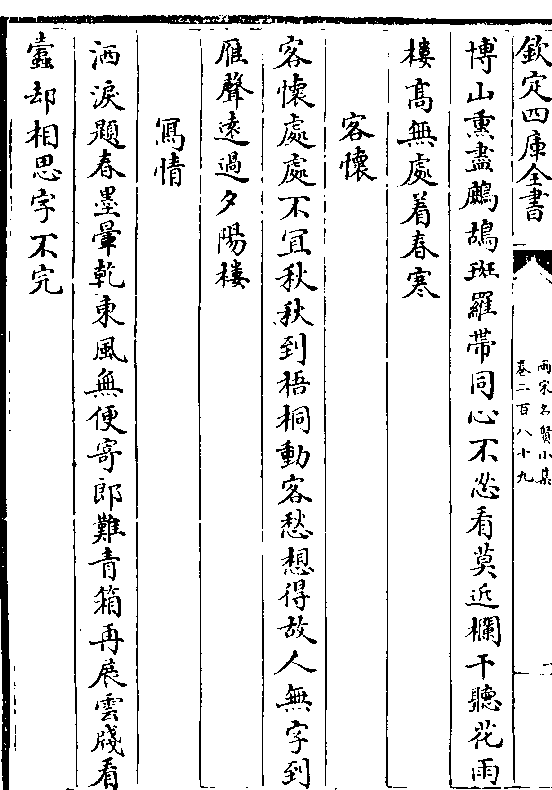 欽定四庫全書
兩宋名賢小集
卷二百八十九
博山熏盡鷓鴣斑羅帶同心不忍看莫近欄干聽花雨
樓高無處着春寒
客懷
客懷處處不宜秋秋到梧桐動客愁想得故人無字到
雁聲遠過夕陽樓
寫情
洒淚題春墨暈乾東風無便寄郎難青箱再展雲牋看
蠧却相思字不完